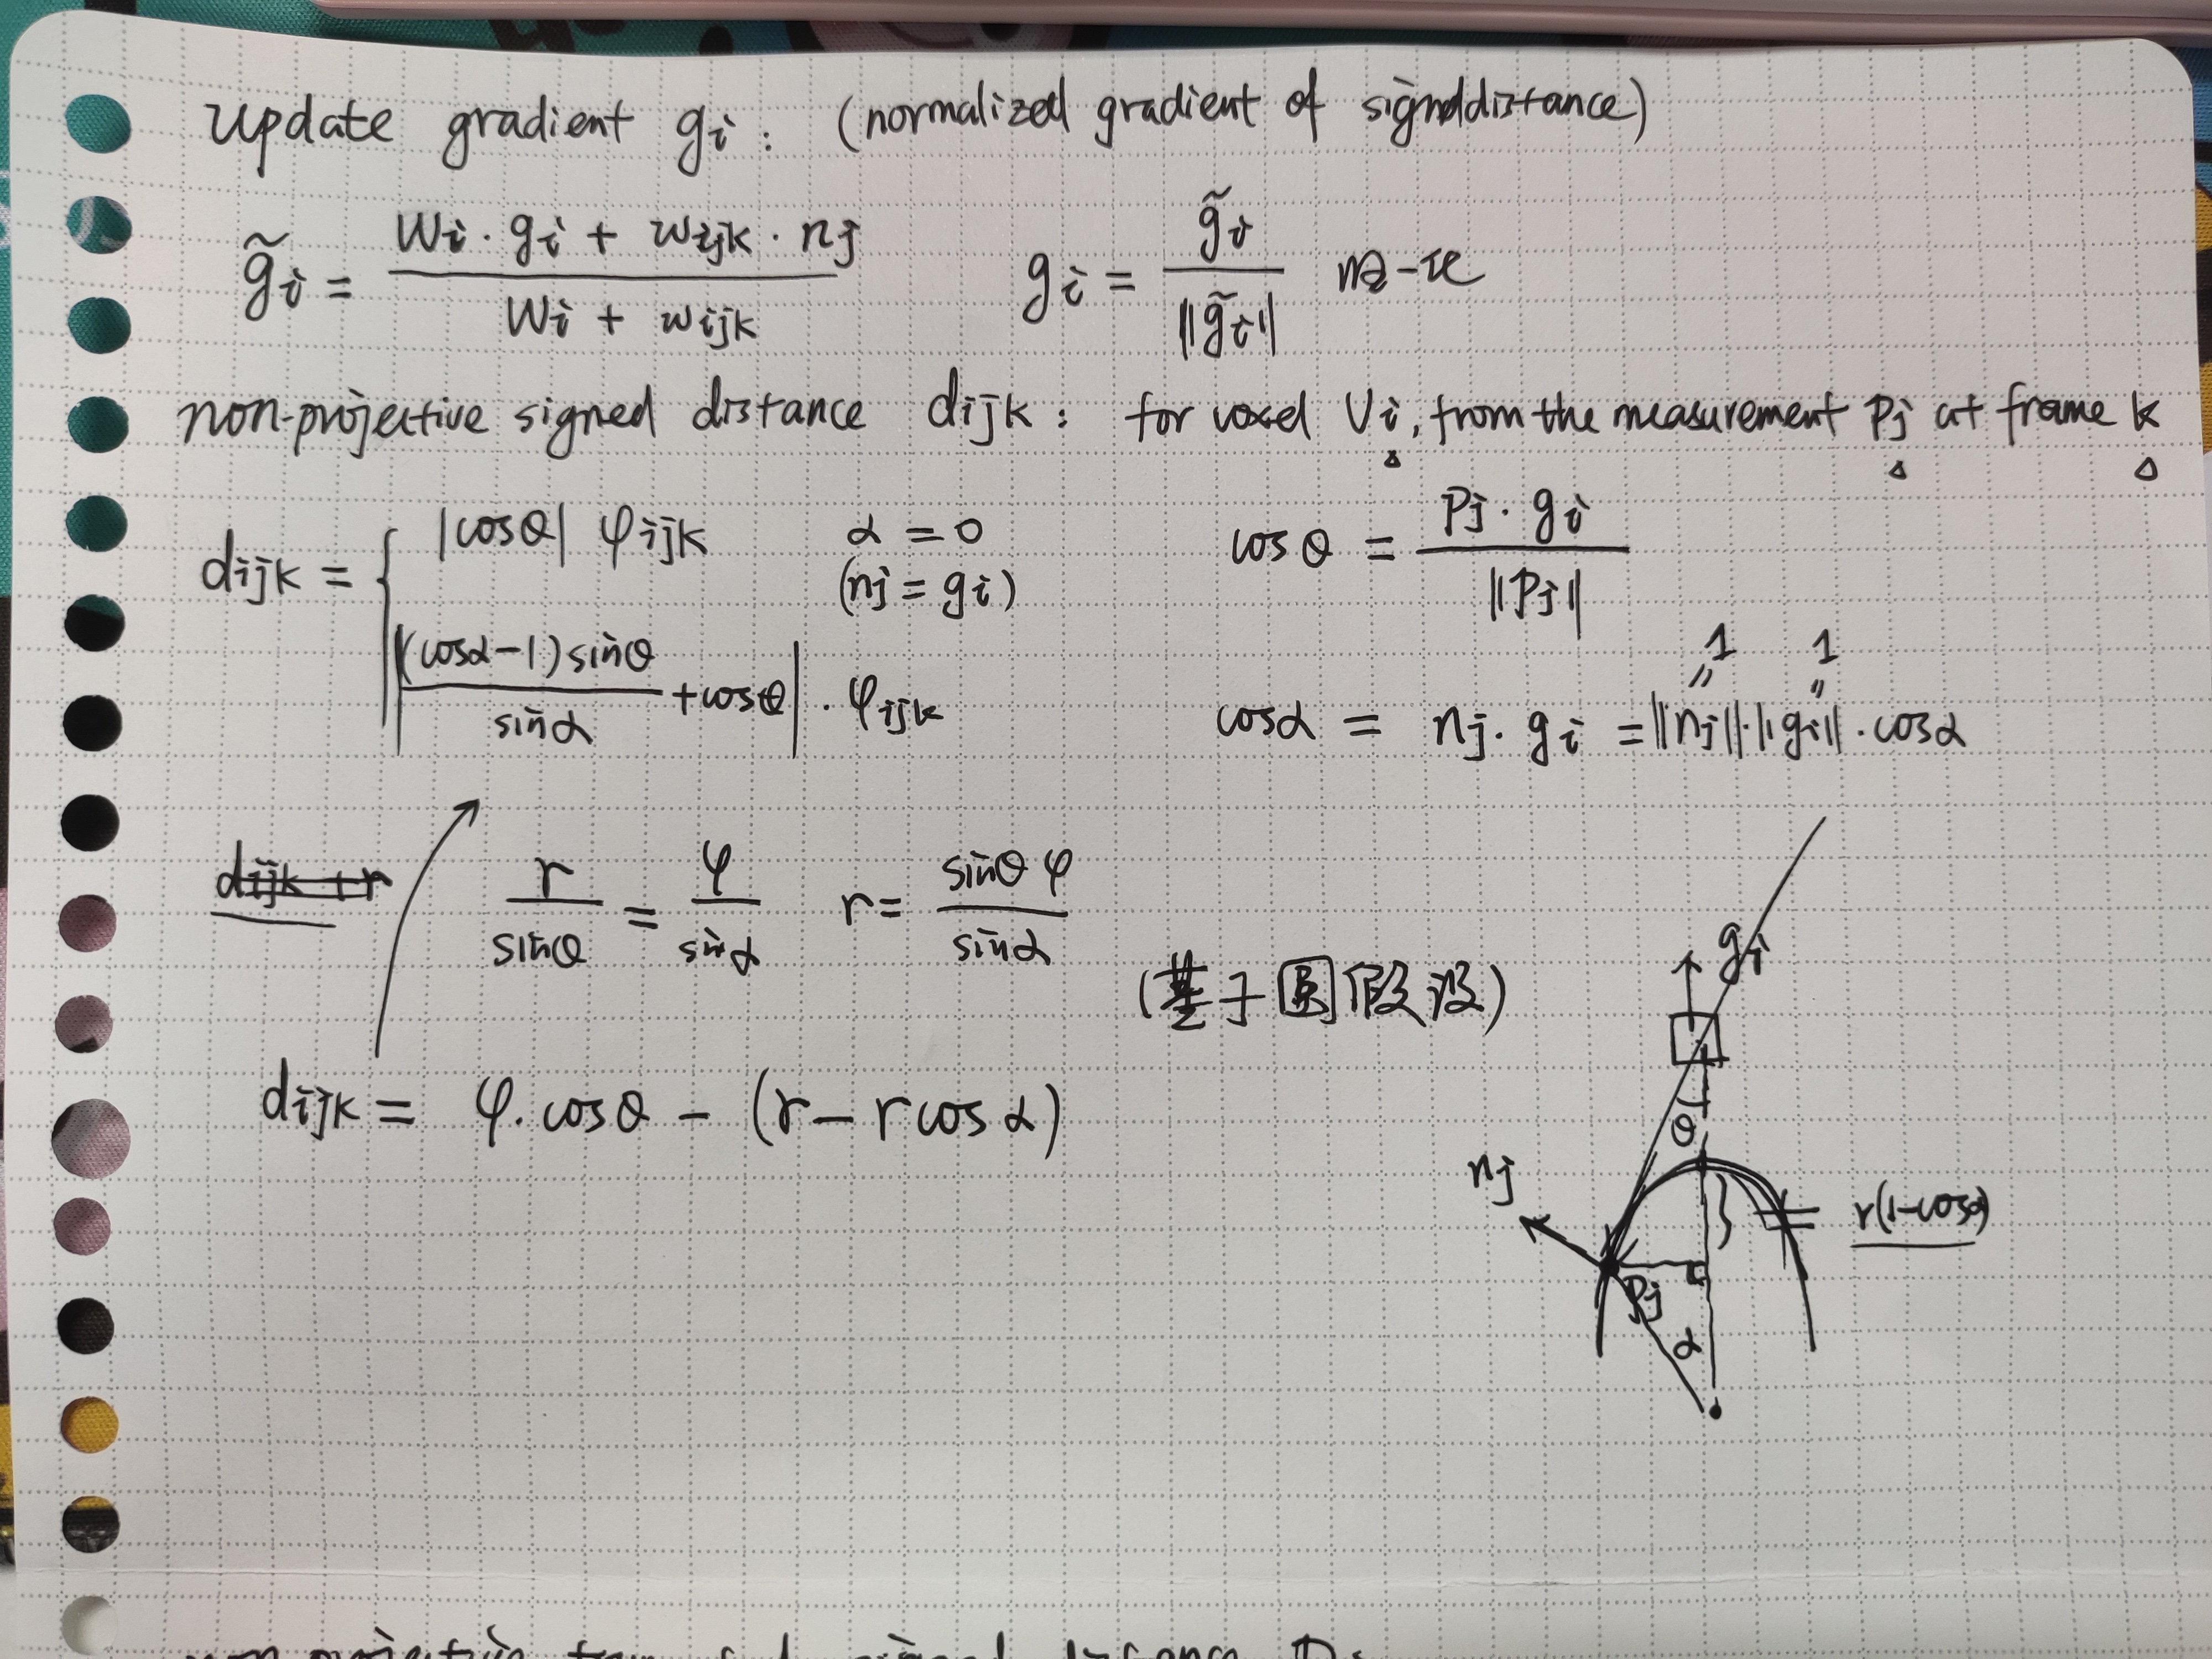 update gradient gi: (normalized gradient of signddistance)
g̃i = (Wi · gi + wijk · nj) / (Wi + wijk)    gi = g̃i / ||g̃i||
non-projective signed distance dijk: for voxel Vi, from the measurement Pj at frame k
dijk = { |cosθ| φijk    α = 0 (nj = gi)    cosθ = Pj · gi / ||Pj||
|(cosα-1)sinθ / sinα + cosθ| · φijk    cosα = nj · gi = ||nj|| · ||gi|| · cosα
1 1
dijk + r
r / sinθ = φ / sinα    r = sinθ φ / sinα
(基于圆假设)
dijk = φ · cosθ - (r - r cosα)
gi
θ
nj
r(1-cosα)
Pj
α